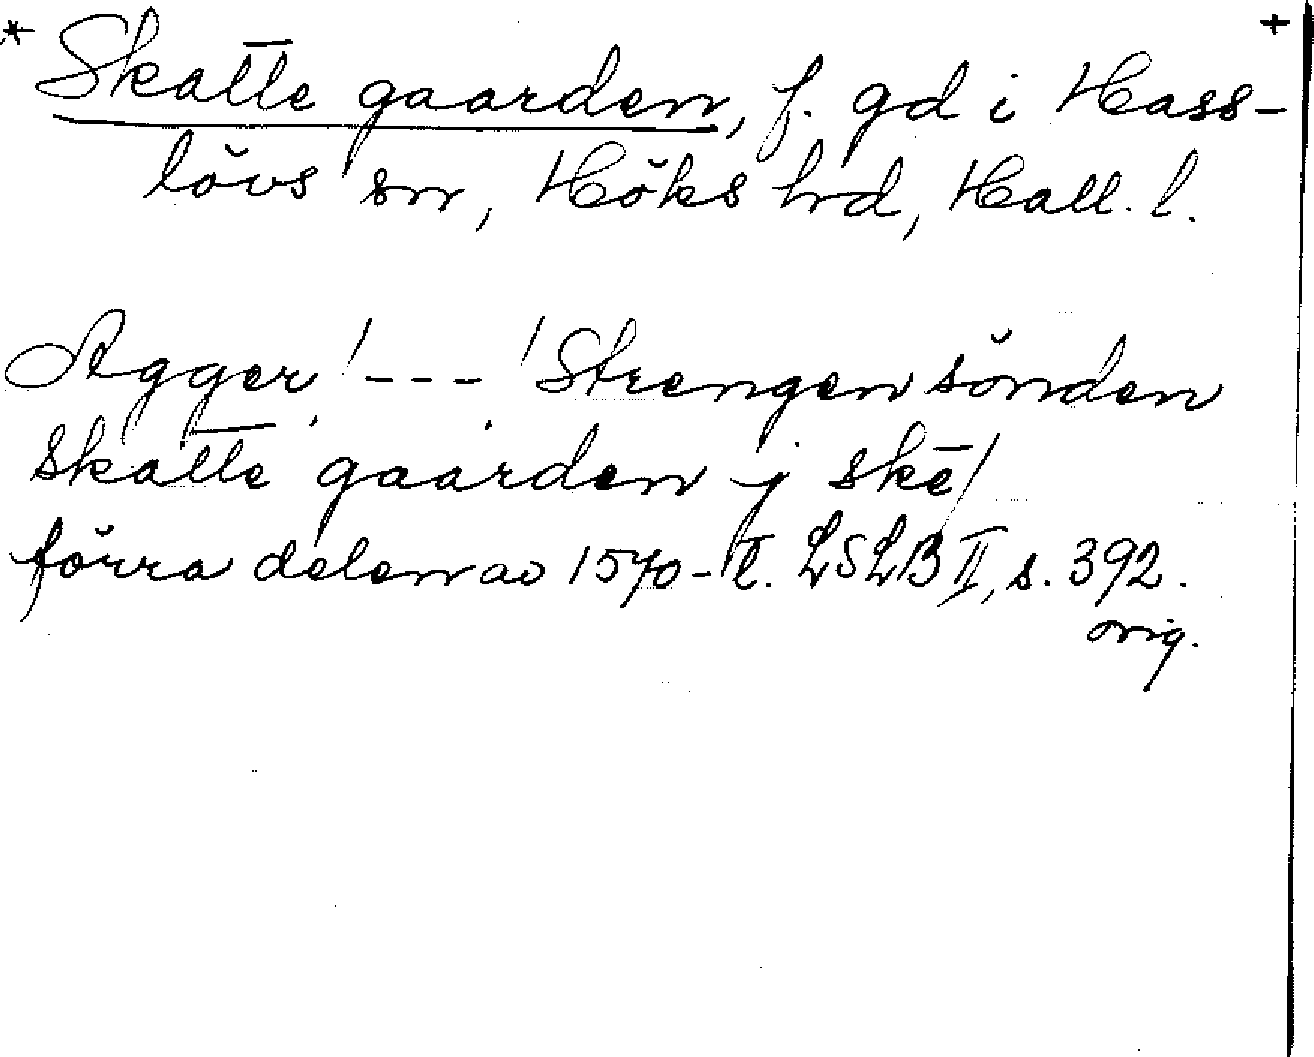 * Skatte gaarden, f. gd i Hass- +
lövs sn, Höks hd, Hall. l.
Agger! --- ! Strengen sönden
skatte gaarden j skē/
förra delen av 1570-t. LSLB II, s. 392.
orig.